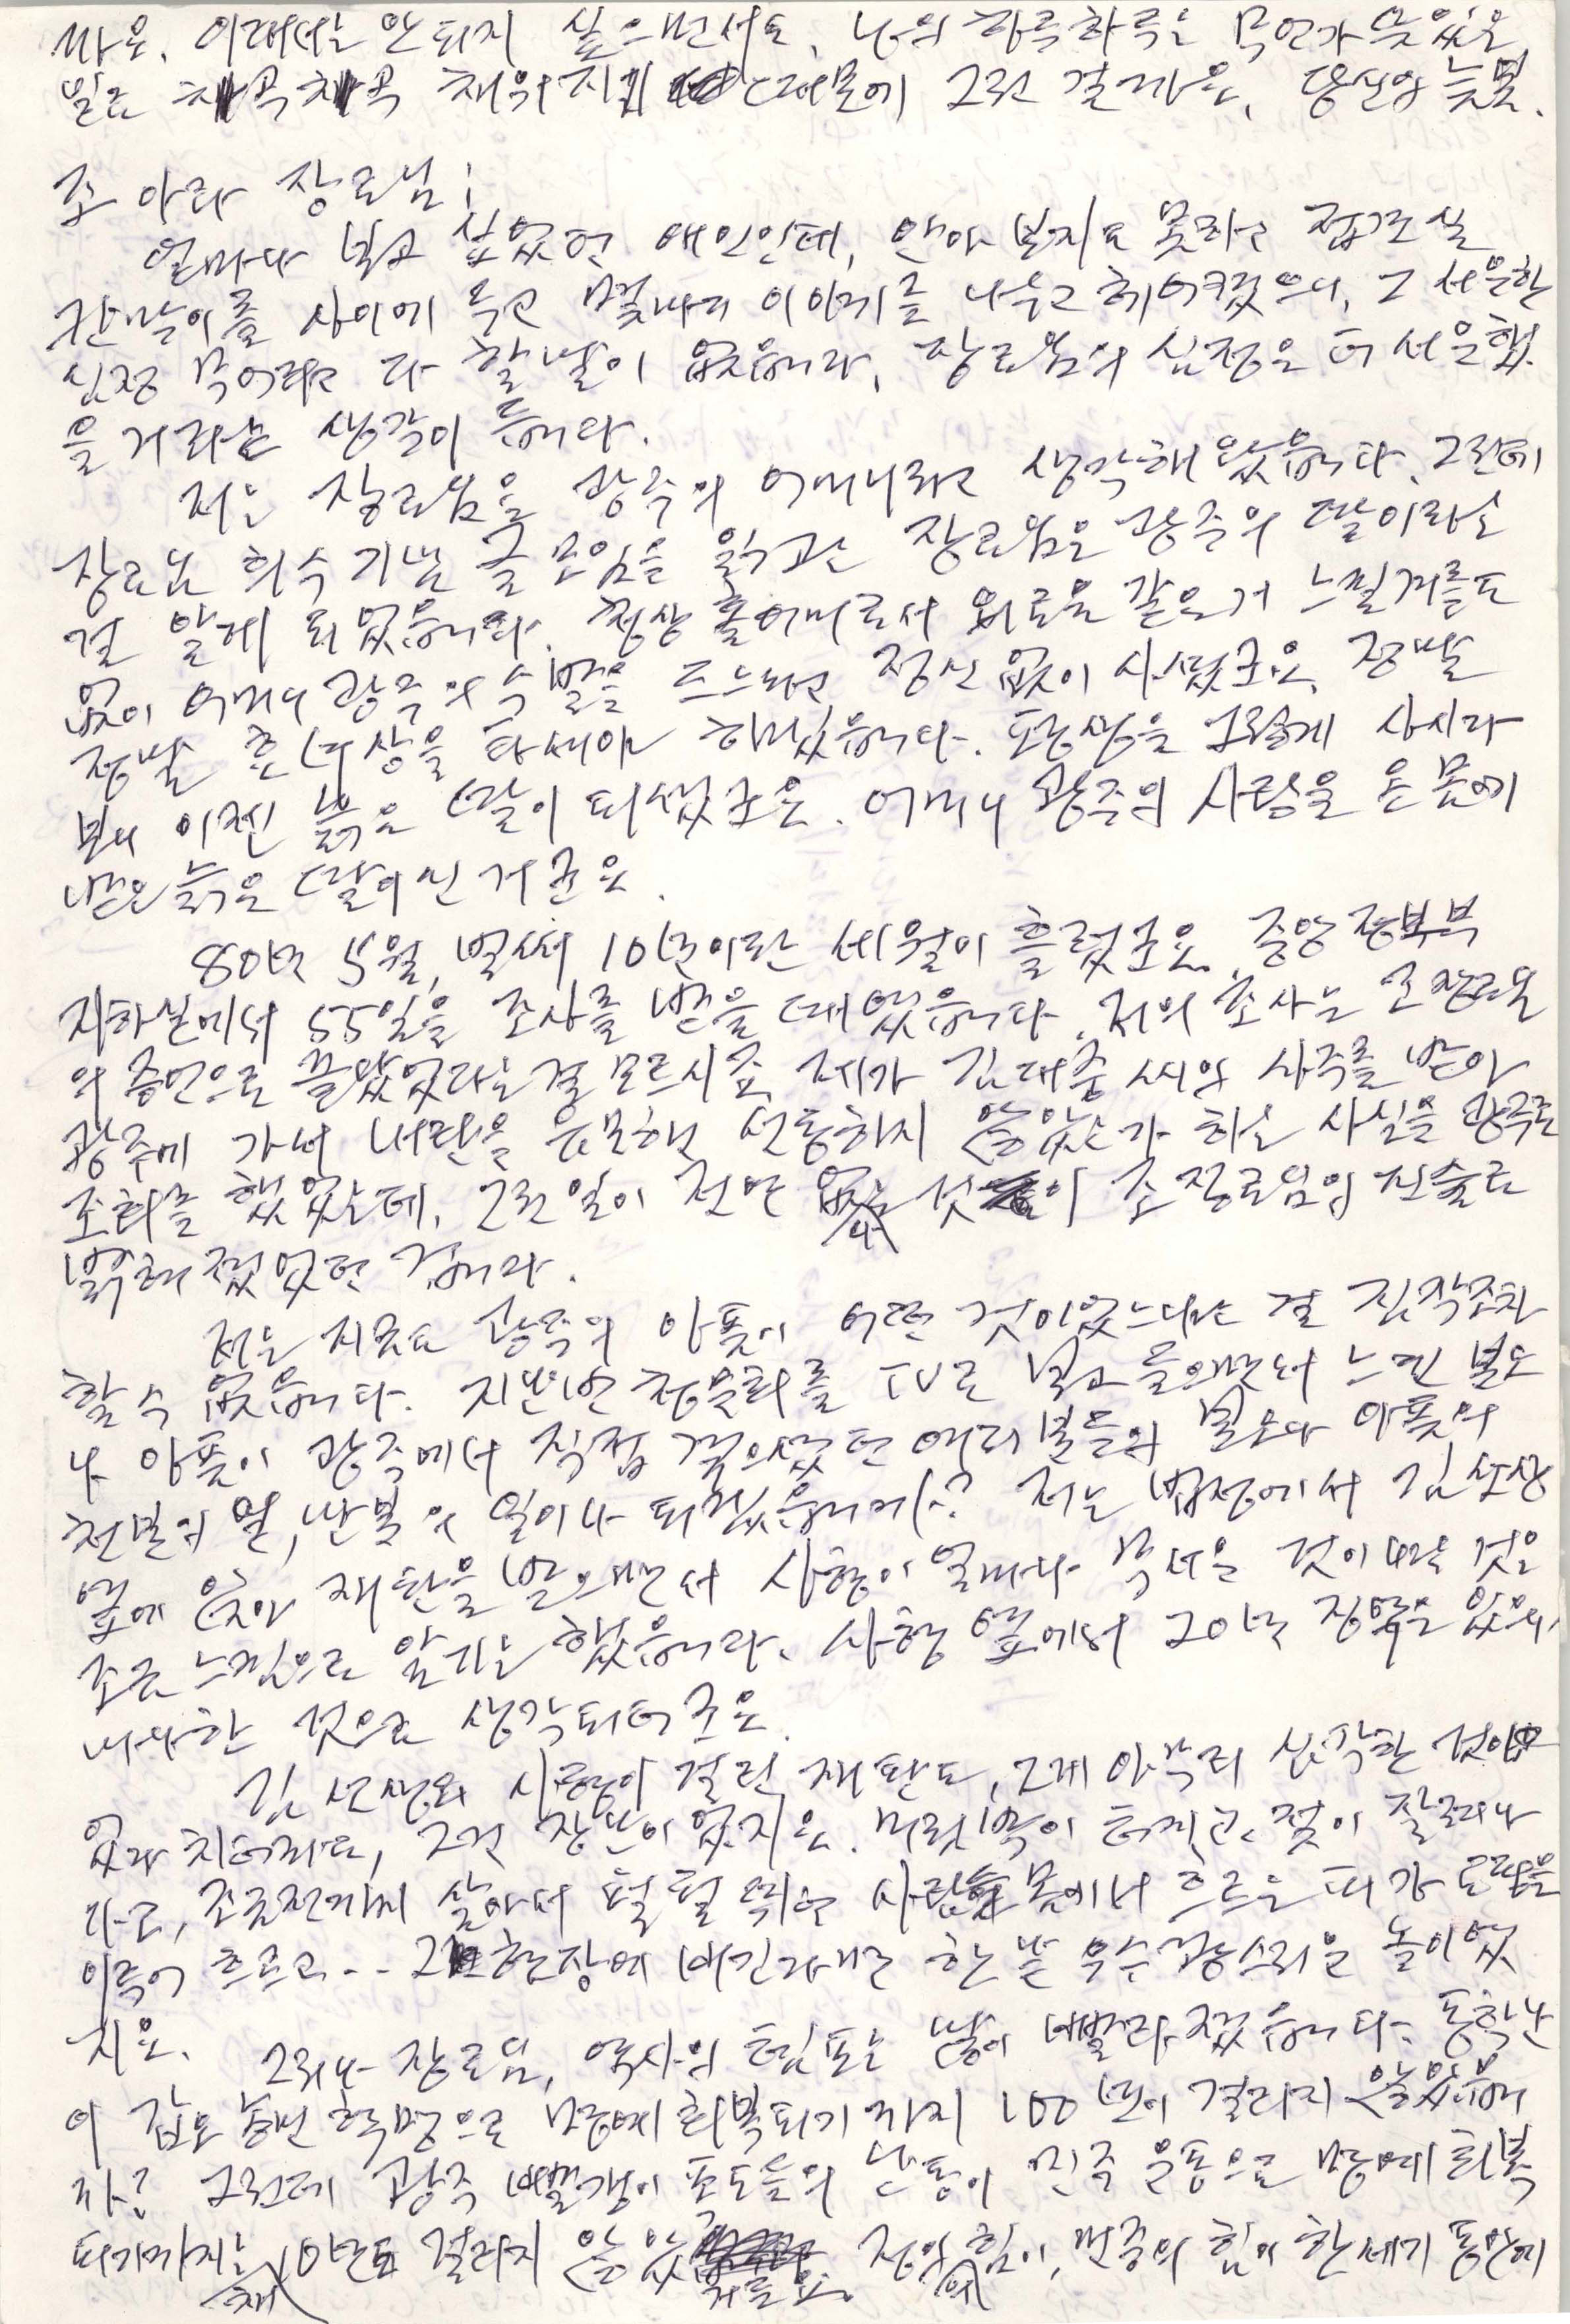 까요. 이래서는 안 되지 싶으면서도, 나의 하루하루는 무언가 뜻있는
일로 차곡차곡 채워지기 때문에 그런 걸까요. 당신의 늦봄.
조 아라 장로님!
얼마나 보고 싶었던 애인인데, 안아 보지도 못하고 접견실
칸막이를 사이에 두고 몇마디 이야기를 나누고 헤어졌으니, 그 서운한
심정 무어라고 다 할 말이 없습니다. 장로님의 심정은 더 서운했
을 거라는 생각이 듭니다.
저는 장로님을 광주의 어머니라고 생각해 왔습니다. 그런데
장로님 희수 기념 글 모임을 읽고는 장로님은 광주의 딸이라는
걸 알게 되었습니다. 청상 홀어머로서 외로움 같은 거 느낄 겨를도
없이 어머니 광주의 수발을 드느라고 정신 없이 사셨군요. 정말
정말 효녀상을 타셔야 하겠습니다. 평생을 그렇게 사시다
보니 이젠 늙은 딸이 되셨군요. 어머니 광주의 사랑을 온 몸에
받은 늙은 딸이신 거군요.
80년 5월, 벌써 10년이란 세월이 흘렀군요. 중앙정보부
지하실에서 55일을 조사를 받을 때였습니다. 저의 조사는 조 장로님
의 증언으로 끝났었다는 걸 모르시죠. 제가 김대중씨의 사주를 받아
광주에 가서 내란을 음모하고 선동하지 않았는가 하는 사실을 광주로
조회를 했었는데, 그런 일이 전연 없는 것이 조 장로님의 진술로
밝혀졌었던 겁니다.
저는 지금도 광주의 아픔이 어떤 것이었느냐는 걸 짐작조차
할 수 없습니다. 지난번 청문회를 TV로 보고 들으면서 느낀 분노
나 아픔이 광주에서 직접 겪으셨던 여러분들의 분노나 아픔의
천분의 일, 만분의 일이나 되겠습니까? 저는 법정에서 김 선생
옆에 앉아 재판을 받으면서 사형이 얼마나 무서운 것이라는 것을
조금 느낌으로 알기는 했습니다. 사형 옆에서 20년 징역은 있으나
마나한 것으로 생각되더군요.
김 선생의 사형이 걸린 재판도, 그게 아무리 심각한 것이
었다 치더라도, 그건 장난이었지요. 머리통이 터지고, 젖이 잘려나
가고, 조금전까지 살아서 펄펄 뛰던 사람들 몸에서 흐르는 피가 도랑을
이루어 흐르고.. 그 현장에 비긴다면 한낱 우스꽝스러운 놀이었
지요.
그러나 장로님, 역사의 템포는 많이 빨라졌습니다. 동학난
이 갑오농민혁명으로 명예회복되기까지 100년이 걸리지 않았습니
까? 그런데 광주 빨갱이 폭도들의 난동이 민주운동으로 명예회복
되기까지는 채 10년도 걸리지 않았거든요. 정의의 힘이, 민중의 힘이 한 세기 동안에